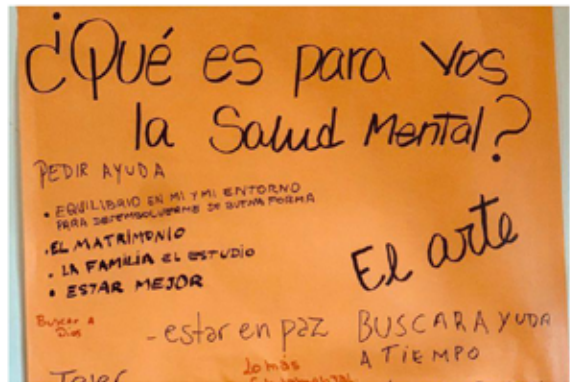 ¿Qué es para vos
la Salud Mental?
PEDIR AYUDA
• EQUILIBRIO EN MI Y MI ENTORNO
PARA DESEMBOLVERME DE BUENA FORMA
• EL MATRIMONIO
• LA FAMILIA EL ESTUDIO
• ESTAR MEJOR
El arte
Buscar a
Dios
- estar en paz
BUSCAR AYUDA
A TIEMPO
Lo más